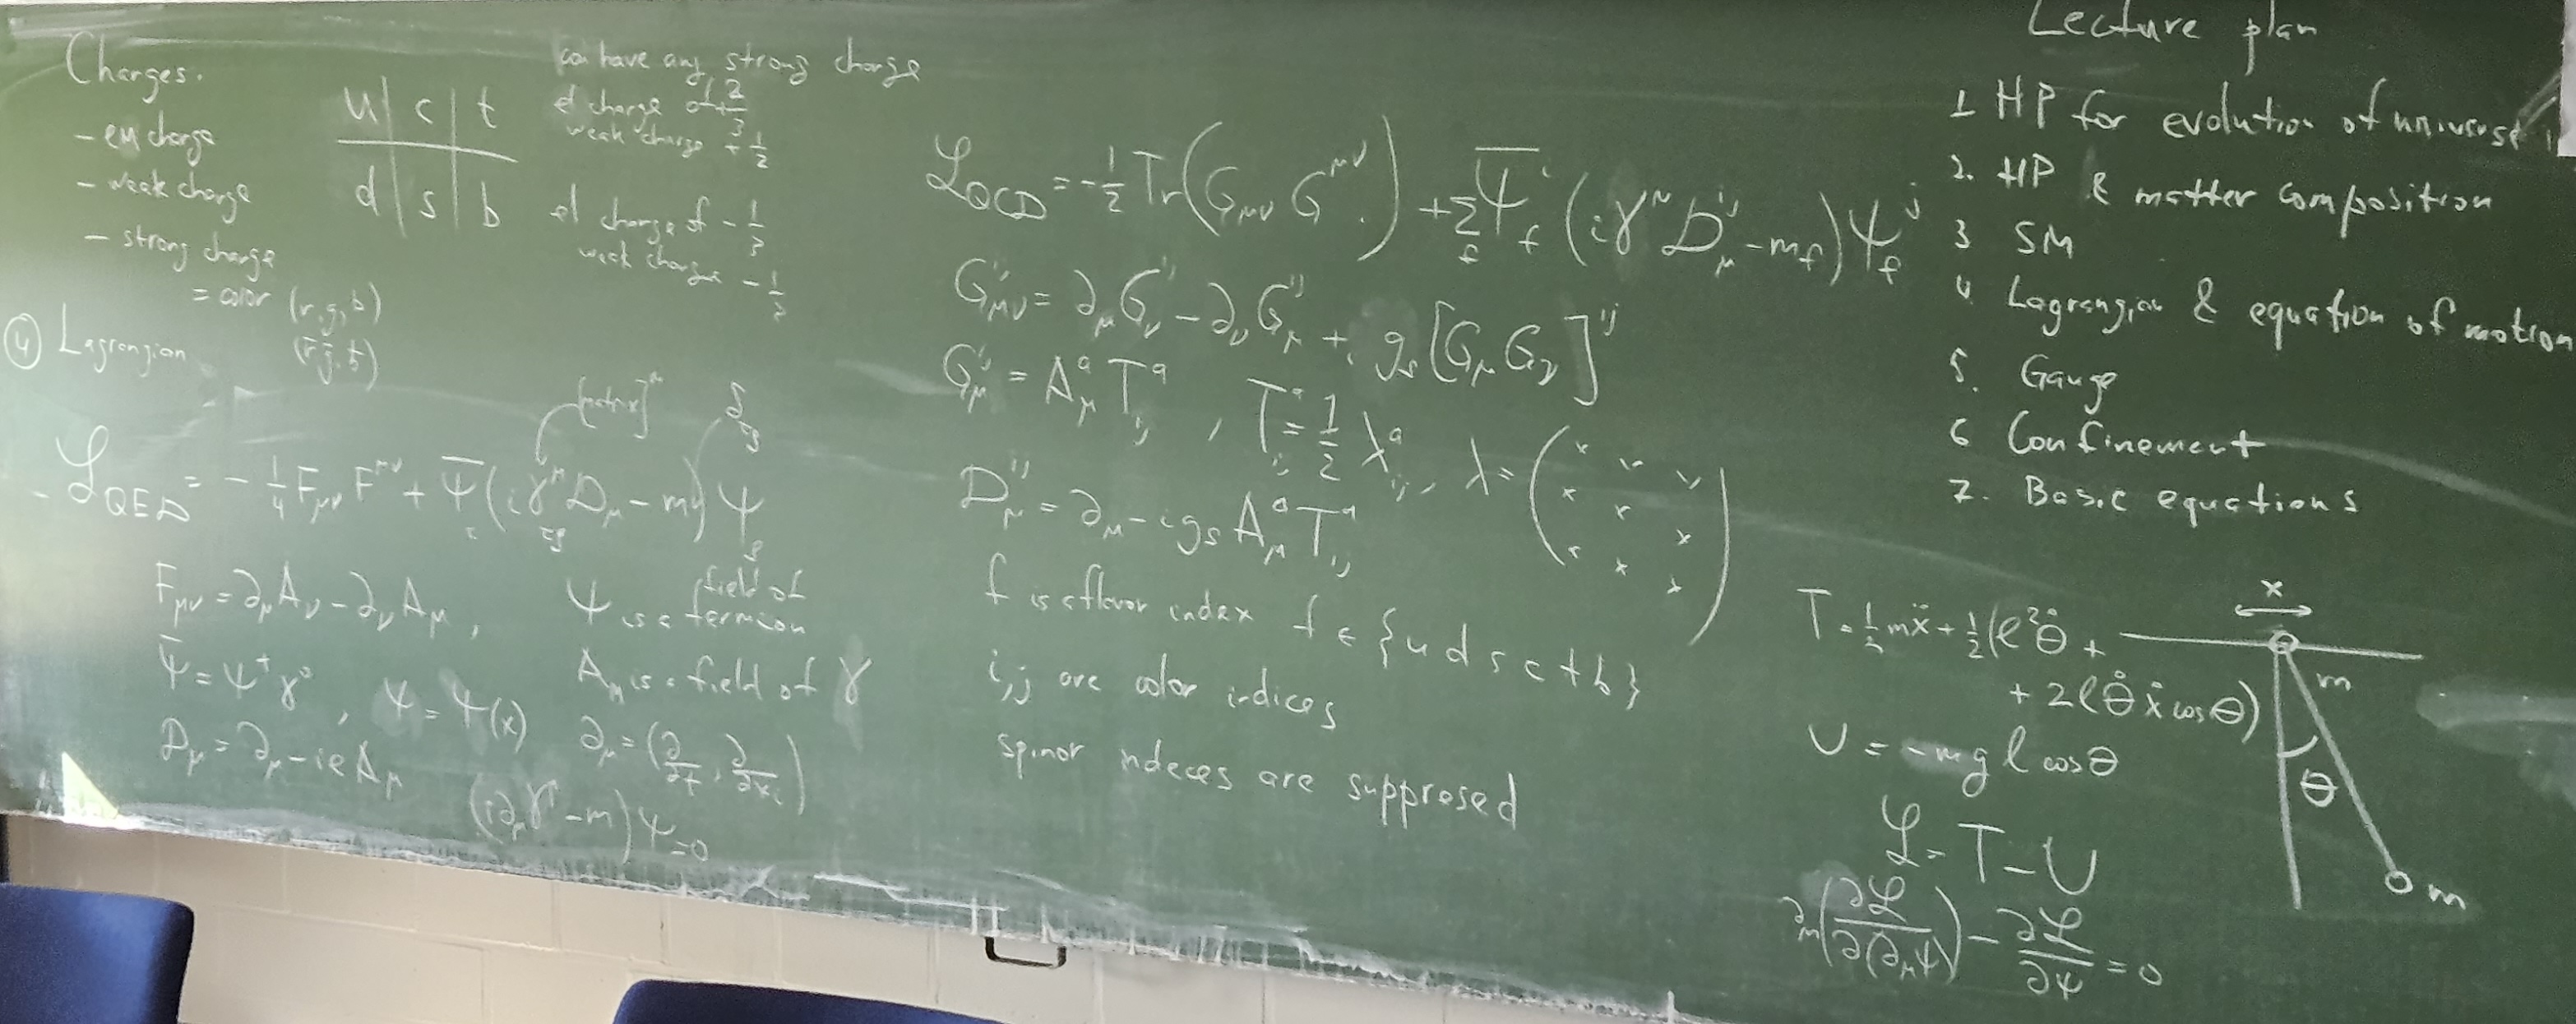 Charges.
- em charge
- weak charge
- strong charge
= color (r, g, b)
(r̄, ḡ, b̄)
u | c | t
d | s | b
can have any strong charge
el charge of + 2/3
weak charge + 1/2
el charge of - 1/3
weak charge - 1/2
④ Lagrangian
[matrix]^μ
ℒ_QED = - 1/4 F_μν F^μν + Ψ̄ (i γ^μ D_μ - m) Ψ
F_μν = ∂_μ A_ν - ∂_ν A_μ ,
Ψ̄ = Ψ^+ γ^0 , Ψ = Ψ(x)
D_μ = ∂_μ - ie A_μ
Ψ is a field of fermion
A_μ is a field of γ
∂_μ = (∂/∂t, ∂/∂x_i)
(i∂_μ γ^μ - m) Ψ = 0
ℒ_QCD = - 1/2 Tr (G_μν G^μν) + Σ_f Ψ̄_f^i (i γ^μ D_μ^ij - m_f) Ψ_f^j
G_μν^ij = ∂_μ G_ν^ij - ∂_ν G_μ^ij + i g_s [G_μ G_ν]^ij
G_μ^ij = A_μ^a T_ij^a , T_ij^a = 1/2 λ_ij^a , λ =
D_μ^ij = ∂_μ - i g_s A_μ^a T_ij^a
f is a flavor index f ∈ {u d s c t b}
i,j are color indices
spinor indeces are suppresed
Lecture plan
1 HP for evolution of universe
2. HP & matter composition
3 SM
4 Lagrangian & equation of motion
5. Gauge
6 Confinement
7. Basic equations
T = 1/2 mẍ + 1/2 (ℓ² θ̇ +
+ 2ℓ θ̇ ẋ cos θ)
U = - m g ℓ cos θ
ℒ = T - U
∂_μ (∂ℒ/∂(∂_μ Ψ)) - ∂ℒ/∂Ψ = 0
x
m
θ
m